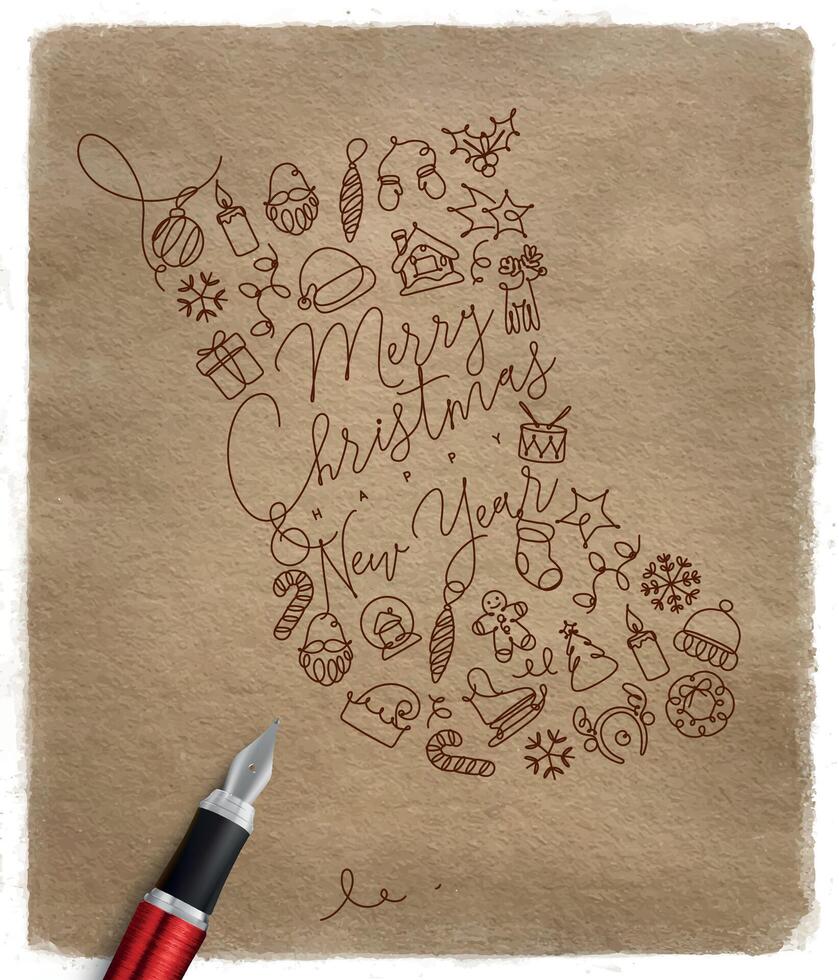 Merry
Christmas
HAPPY
New Year